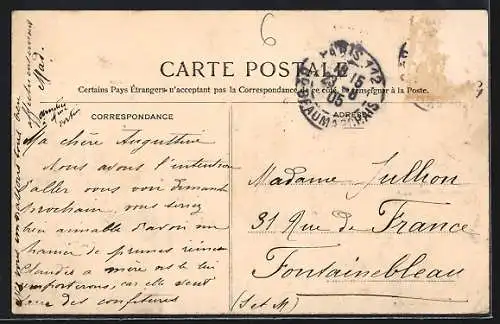 6
CARTE POSTALE
Certains Pays Étrangers n'acceptant pas la Correspondance de ce côté, se renseigner à la Poste.
PARIS 102
15
23 - 8
05
BOUL. BEAUMARCHAIS
CORRESPONDANCE
ADRESSE
Ma chère Augustine
Nous avons l'intention
d'aller vous voir dimanche
prochain, vous seriez
bien aimable d'avoir un
panier de prunes reines
Claudes à mère et le lui
emporterons, car elle veut
faire des confitures
Je vous embrasse tous bien
affectueusement
Mad.
Madame Jullhon
31 Rue de France
Fontainebleau
(S et M)